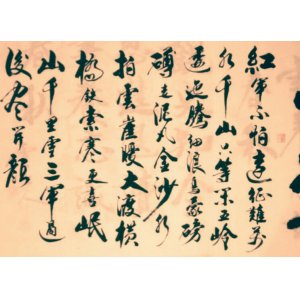 紅軍不怕遠征難萬
水千山只等閑五嶺
逶迤騰細浪烏蒙磅
礴走泥丸金沙水
拍雲崖暖大渡橋
橫鉄索寒更喜岷
山千里雪三軍過
後尽開顔